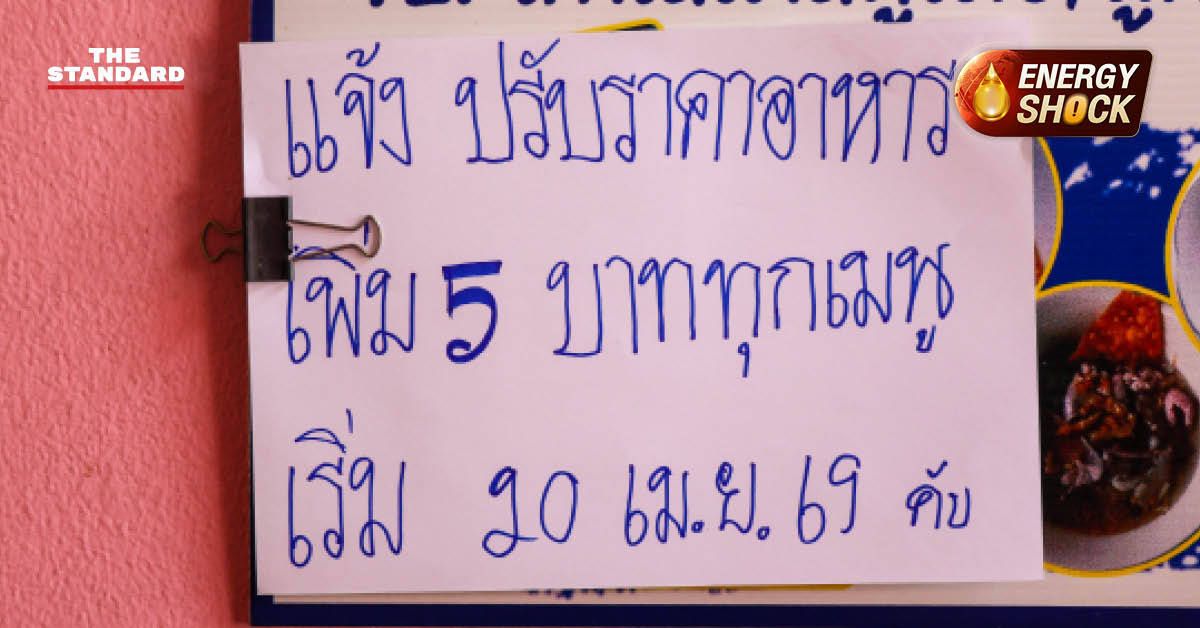 THE
STANDARD
ENERGY
SHOCK
แจ้ง ปรับราคาอาหาร
เพิ่ม 5 บาททุกเมนู
เริ่ม 20 เม.ย. 69 คับ